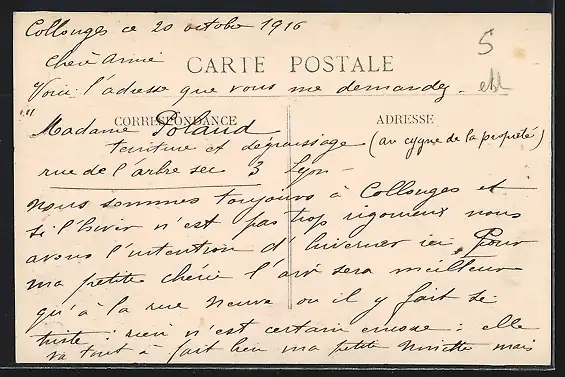 Collonges ce 20 octobre 1916
Chère Amie
CARTE POSTALE
Voici l'adresse que vous me demandez.
CORRESPONDANCE
ADRESSE
"Madame Poland
teinture et dégraissage (au cygne de la propreté)
rue de l'arbre sec 3 Lyon -
nous sommes toujours à Collonges et
si l'hiver n'est pas trop rigoureux nous
avons l'intention d'hiverner ici, Pour
ma petite chérie l'air sera meilleur
qu'à la rue Neuve ou il y fait si
triste : rien n'est certain encore : elle
va tout à fait bien ma petite Ninette mais
5